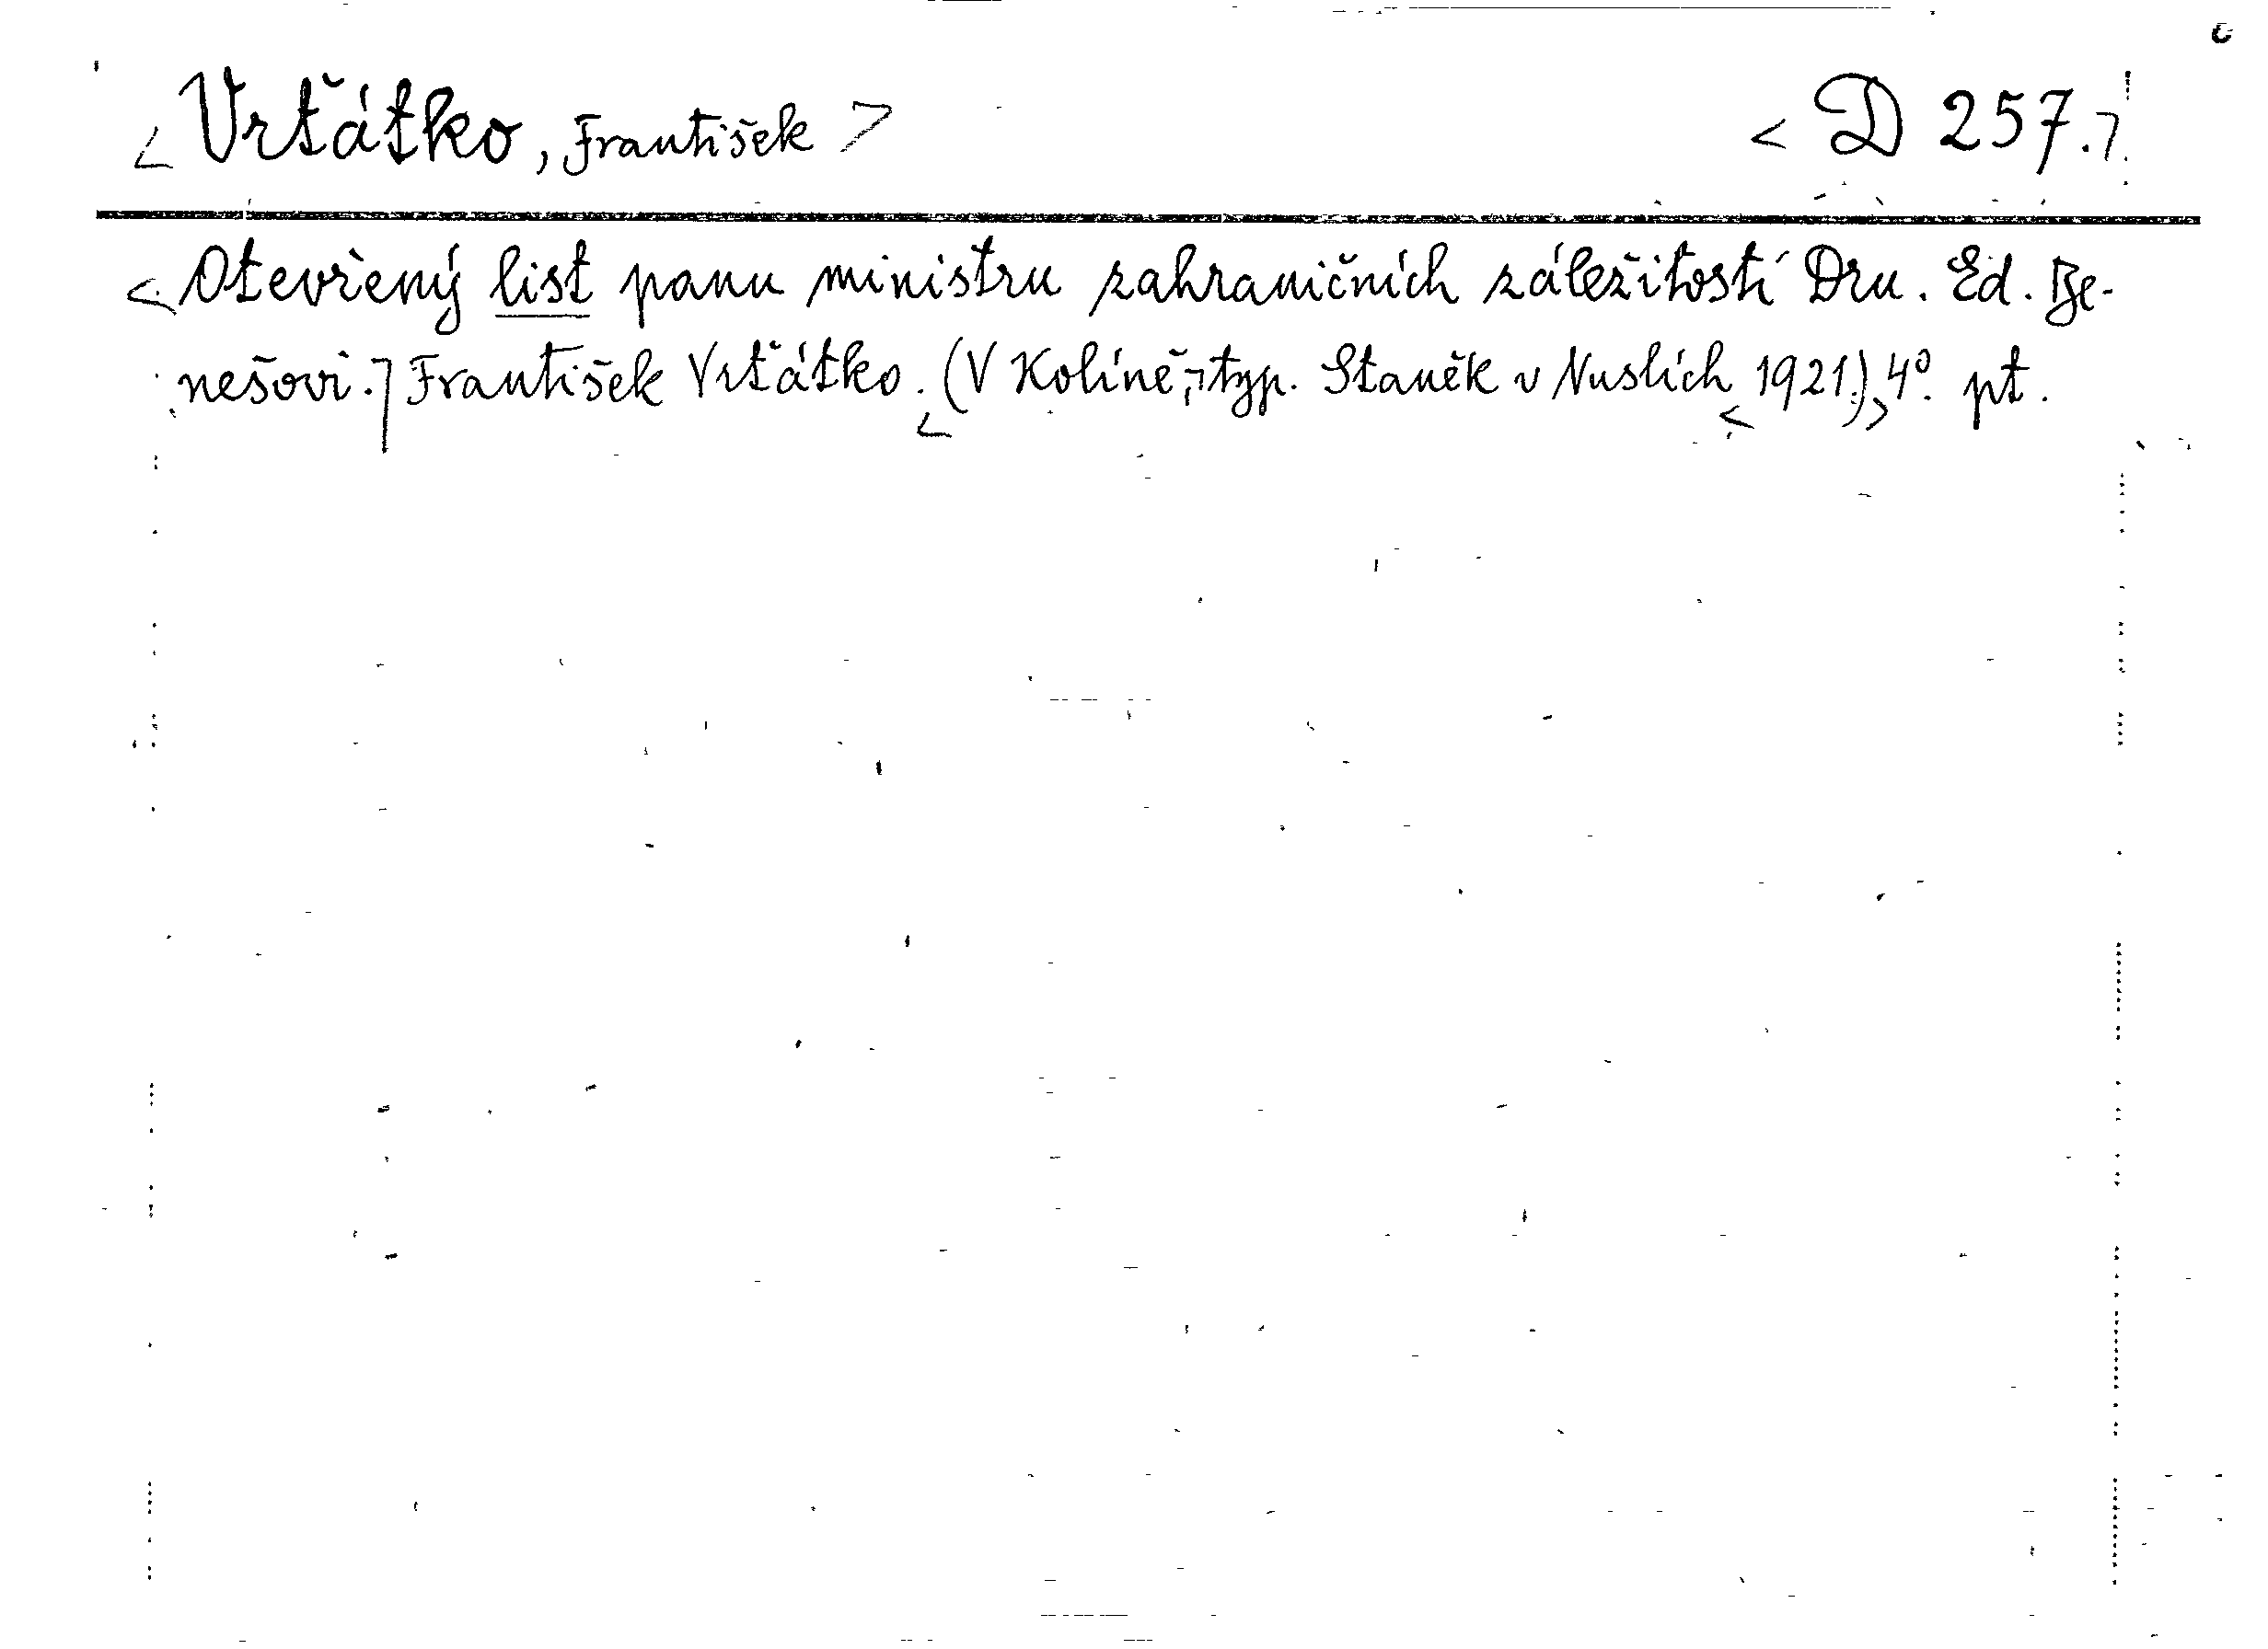 <Vrťátko, František> <D 257.>
<Otevřený list panu ministru zahraničních záležitostí Dru. Ed. Be-
nešovi.] František Vrťátko. <(V Kolíně,> typ. Staněk v Nuslích <1921.)> 4°. pt.